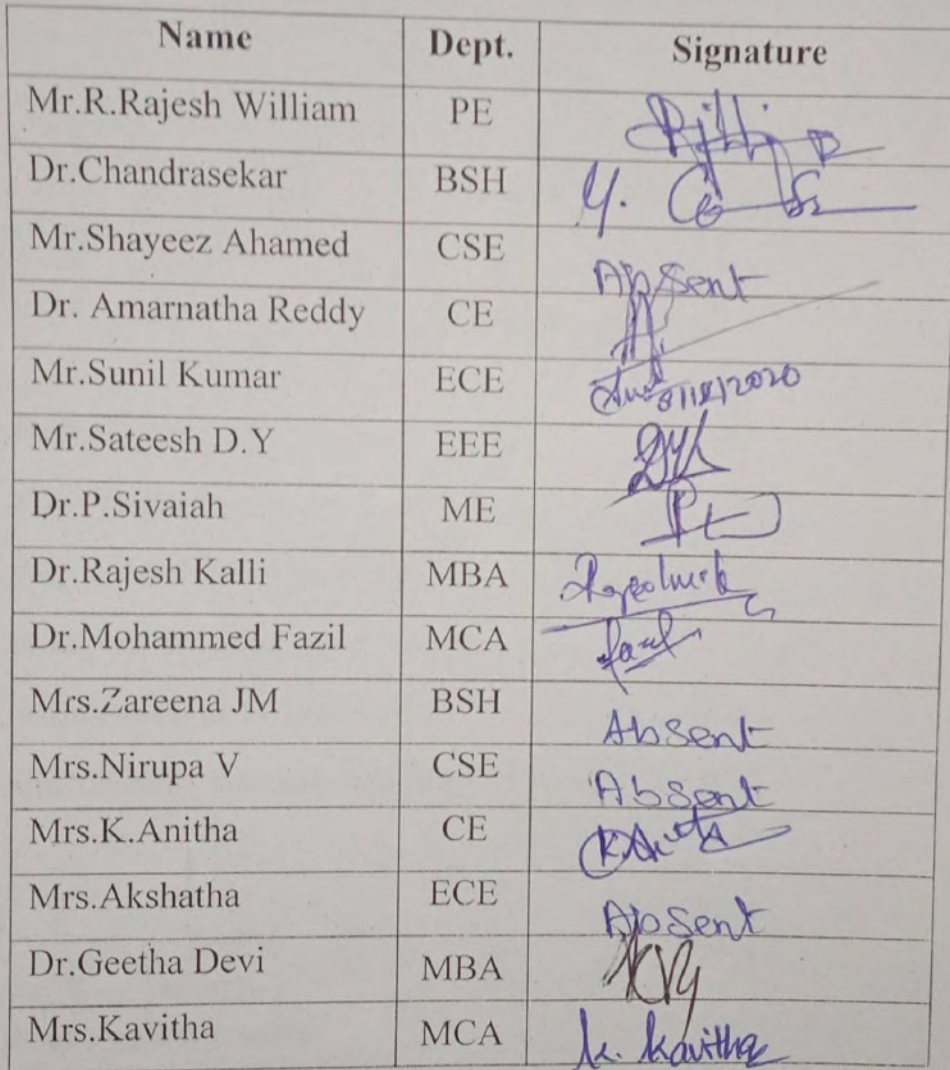 Name Dept. Signature
Mr.R.Rajesh William PE
Dr.Chandrasekar BSH
Mr.Shayeez Ahamed CSE Absent
Dr. Amarnatha Reddy CE
Mr.Sunil Kumar ECE
Mr.Sateesh D.Y EEE
Dr.P.Sivaiah ME
Dr.Rajesh Kalli MBA
Dr.Mohammed Fazil MCA
Mrs.Zareena JM BSH Absent
Mrs.Nirupa V CSE Absent
Mrs.K.Anitha CE
Mrs.Akshatha ECE Absent
Dr.Geetha Devi MBA
Mrs.Kavitha MCA k. Kavitha